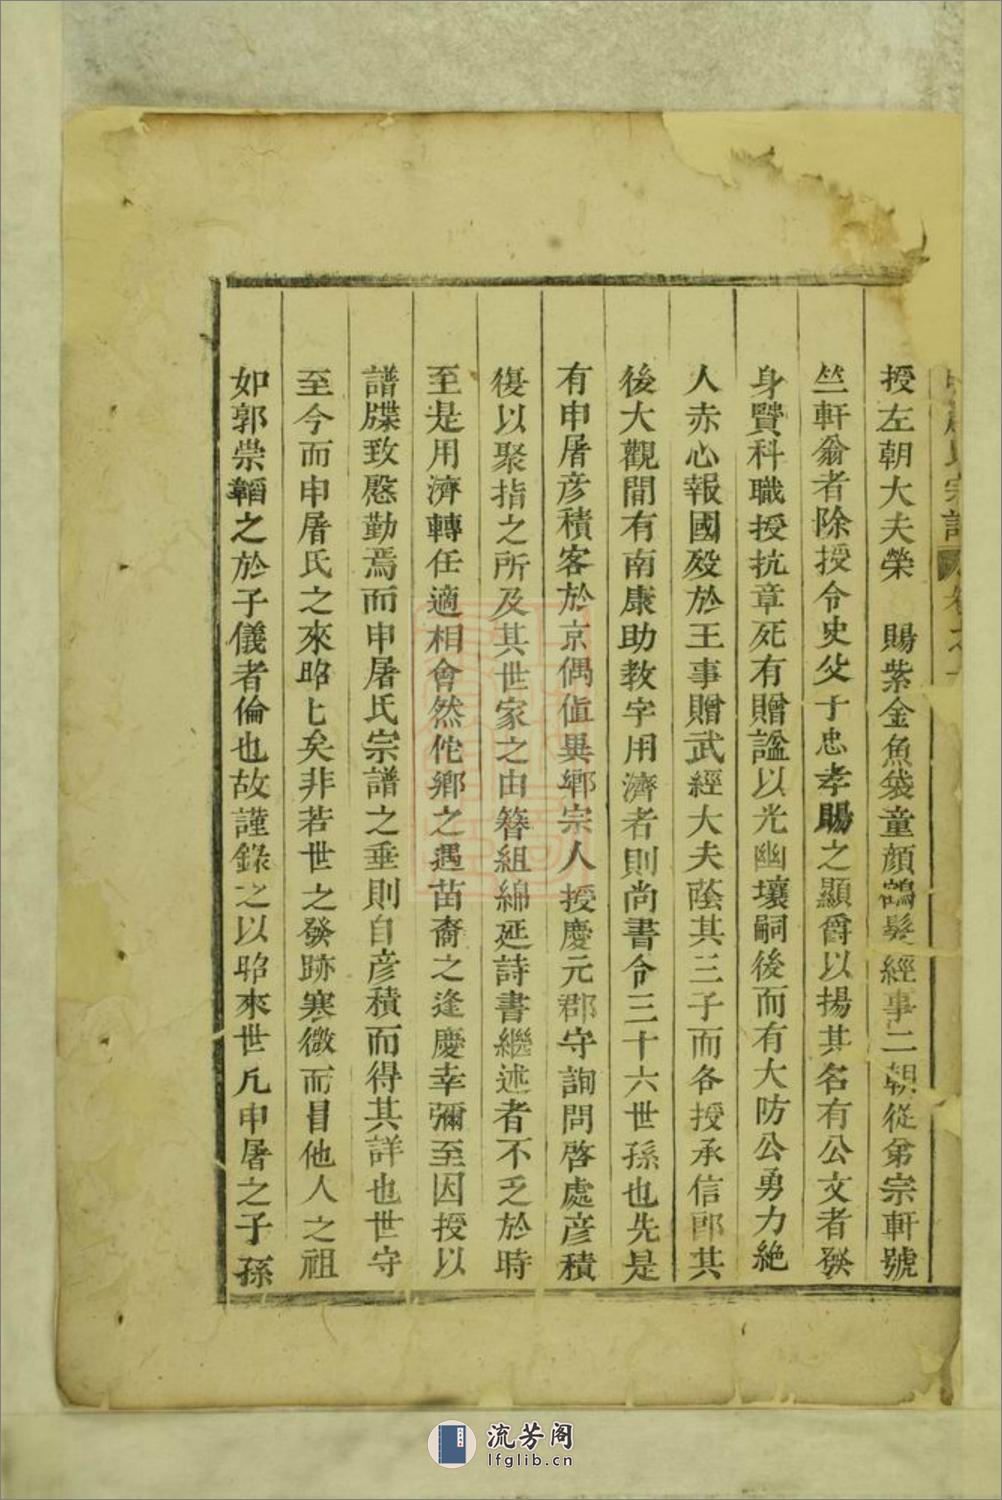 授左朝大夫榮　賜紫金魚袋童顔鶴髮經事二朝從弟宗軒號
竺軒翁者除授令史父子忠孝賜之顯爵以揚其名有公文者發
身賢科職授抗章死有贈諡以光幽壤嗣後而有大防公勇力絶
人赤心報國殁於王事贈武經大夫蔭其三子而各授承信郎其
後大觀間有南康助教字用濟者則尚書令三十六世孫也先是
有申屠彦積客於京偶値異鄉宗人授慶元郡守詢問啓處彦積
復以聚指之所及其世家之由簪組綿延詩書繼述者不乏於時
至是用濟轉任適相會然佗鄉之遇苗裔之逢慶幸彌至因授以
譜牒致慇勤焉而申屠氏宗譜之垂則自彦積而得其詳也世守
至今而申屠氏之來昭匕矣非若世之發跡寒微而冒他人之祖
如郭崇韜之於子儀者倫也故謹錄之以昭來世凡申屠之子孫
流芳阁
lfglib.cn